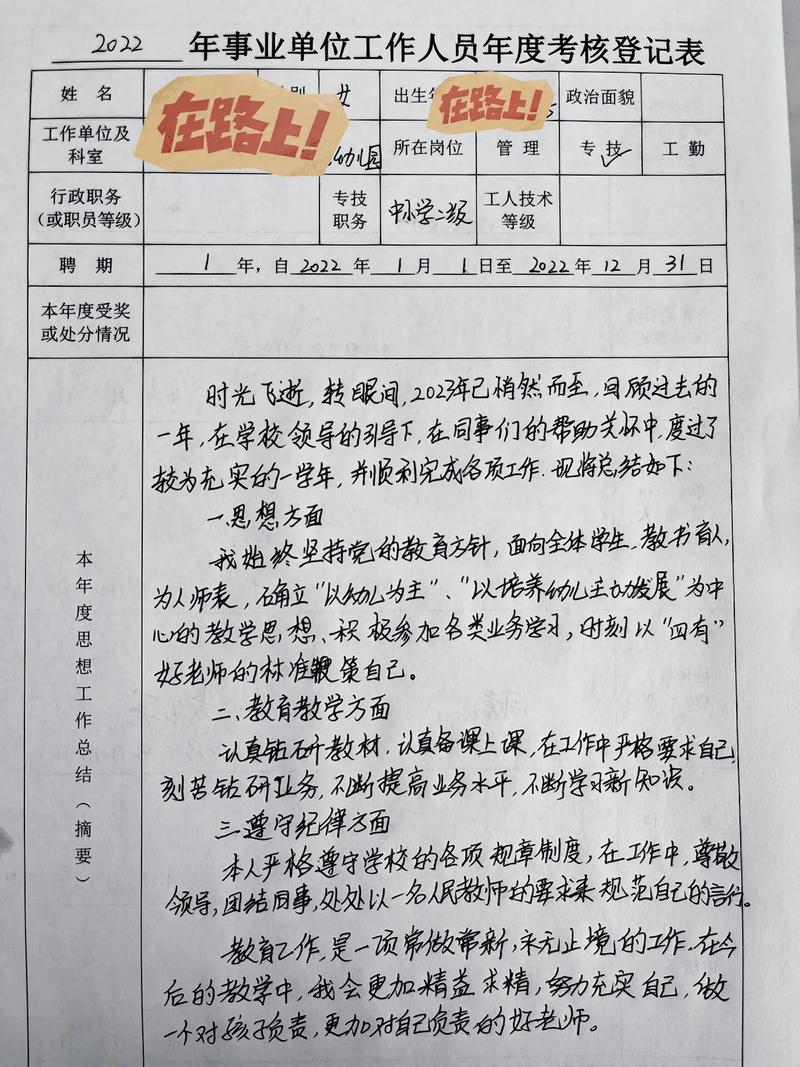 2022 年事业单位工作人员年度考核登记表
姓 名 在路上! 别 女 出生年 在路上! 5 政治面貌
工作单位及科室 幼儿园 所在岗位 管 理 专 技 ✓ 工 勤
行政职务（或职员等级） 专技职务 中小学二级 工人技术等级
聘 期 1 年，自 2022 年 1 月 1 日至 2022 年 12 月 31 日
本年度受奖或处分情况
本年度思想工作总结（摘要）
时光飞逝，转眼间，2023年已悄然而至，回顾过去的
一年，在学校领导的引导下，在同事们的帮助关怀中，度过了
较为充实的一学年，并顺利完成各项工作．现将总结如下：
一.思想方面
我始终坚持党的教育方针，面向全体学生、教书育人，
为人师表，确立“以幼儿为主”、“以培养幼儿主动发展”为中
心的教学思想、积极参加各类业务学习，时刻以“四有”
好老师的标准鞭策自己。
二、教育教学方面
认真钻研教材，认真备课上课，在工作中严格要求自己，
刻苦钻研业务，不断提高业务水平，不断学习新知识。
三.遵守纪律方面
本人严格遵守学校的各项规章制度，在工作中，尊敬
领导，团结同事，处处以一名人民教师的要求来规范自己的言行。
教育工作，是一项常做常新，永无止境的工作．在今
后的教学中，我会更加精益求精，努力充实自己，做
一个对孩子负责，更加对自己负责的好老师。